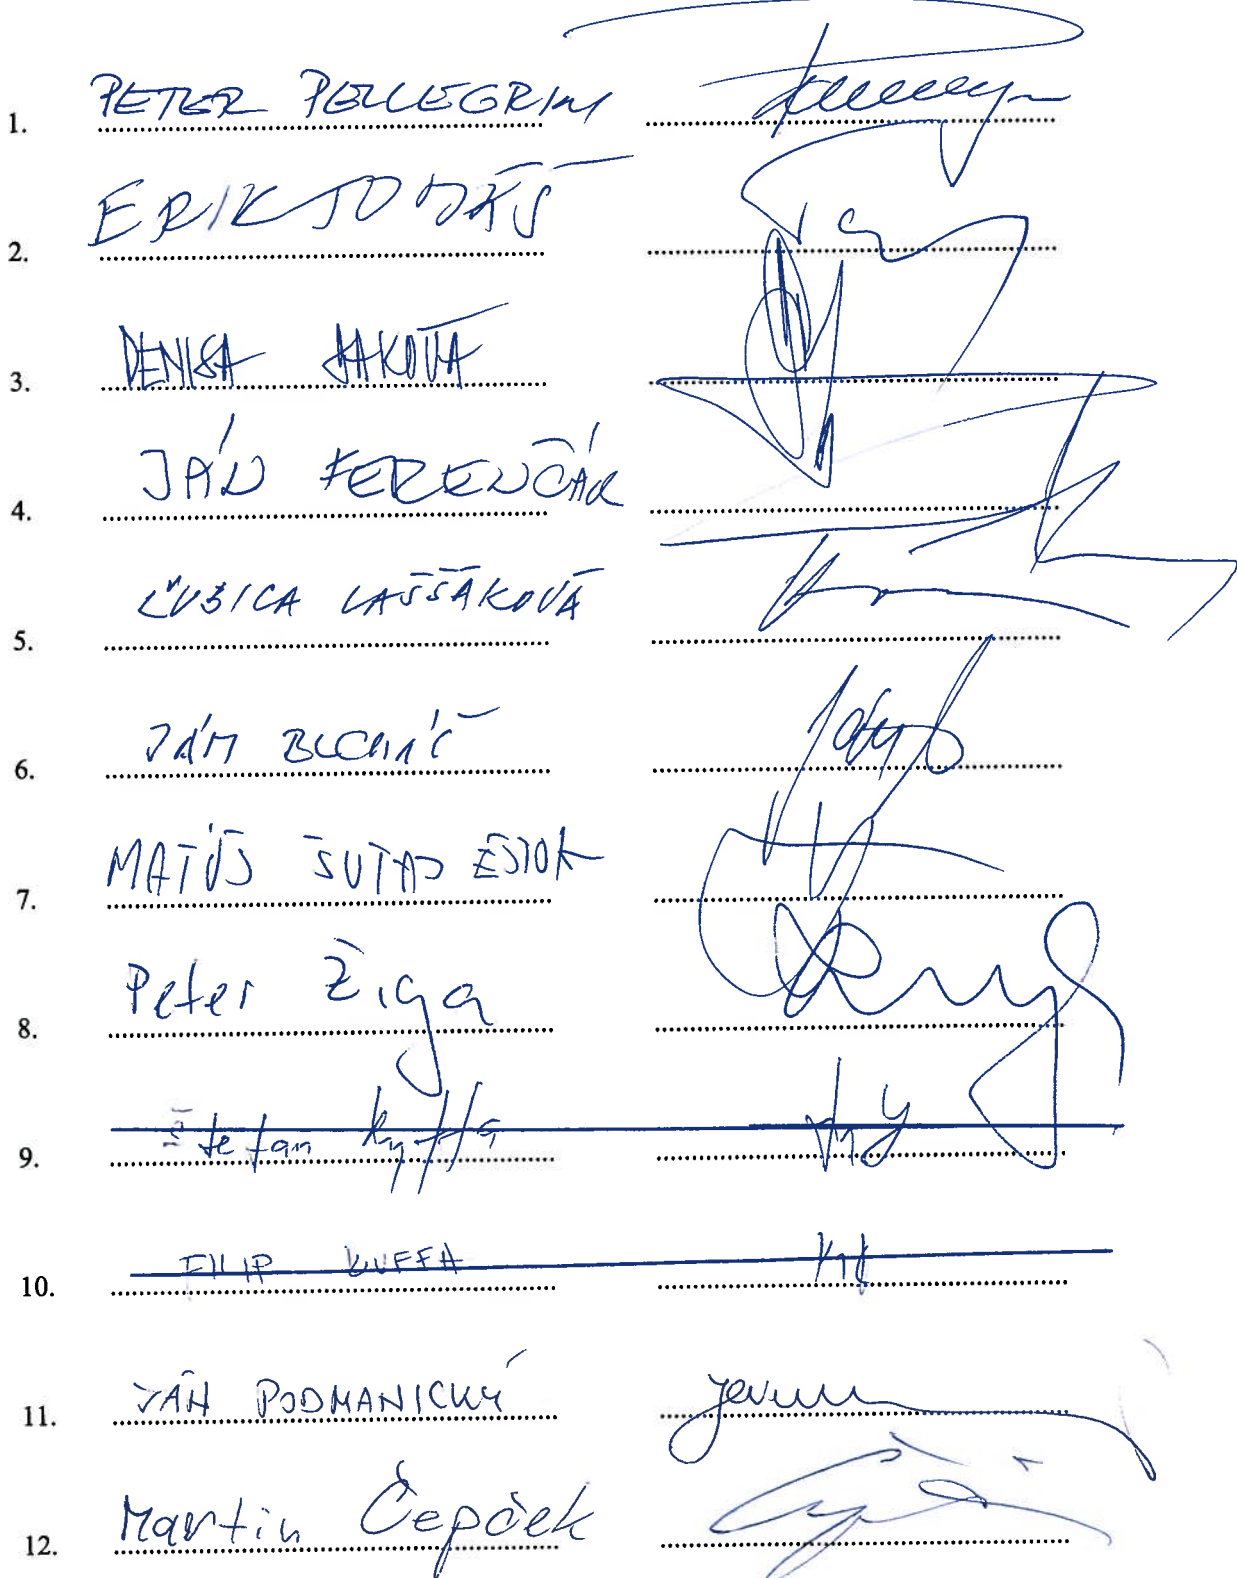 1. PETER PELLEGRINI
2. ERIK TOMÁŠ
3. DENISA SAKOVÁ
4. JÁN FERENČÁK
5. ĽUBICA LAŠŠÁKOVÁ
6. JÁN BLCHÁČ
7. MATÚŠ ŠUTAJ EŠTOK
8. Peter Žiga
9. Štefan Kuffa
10. FILIP KUFFA
11. JÁN PODMANICKÝ
12. Martin Čepček